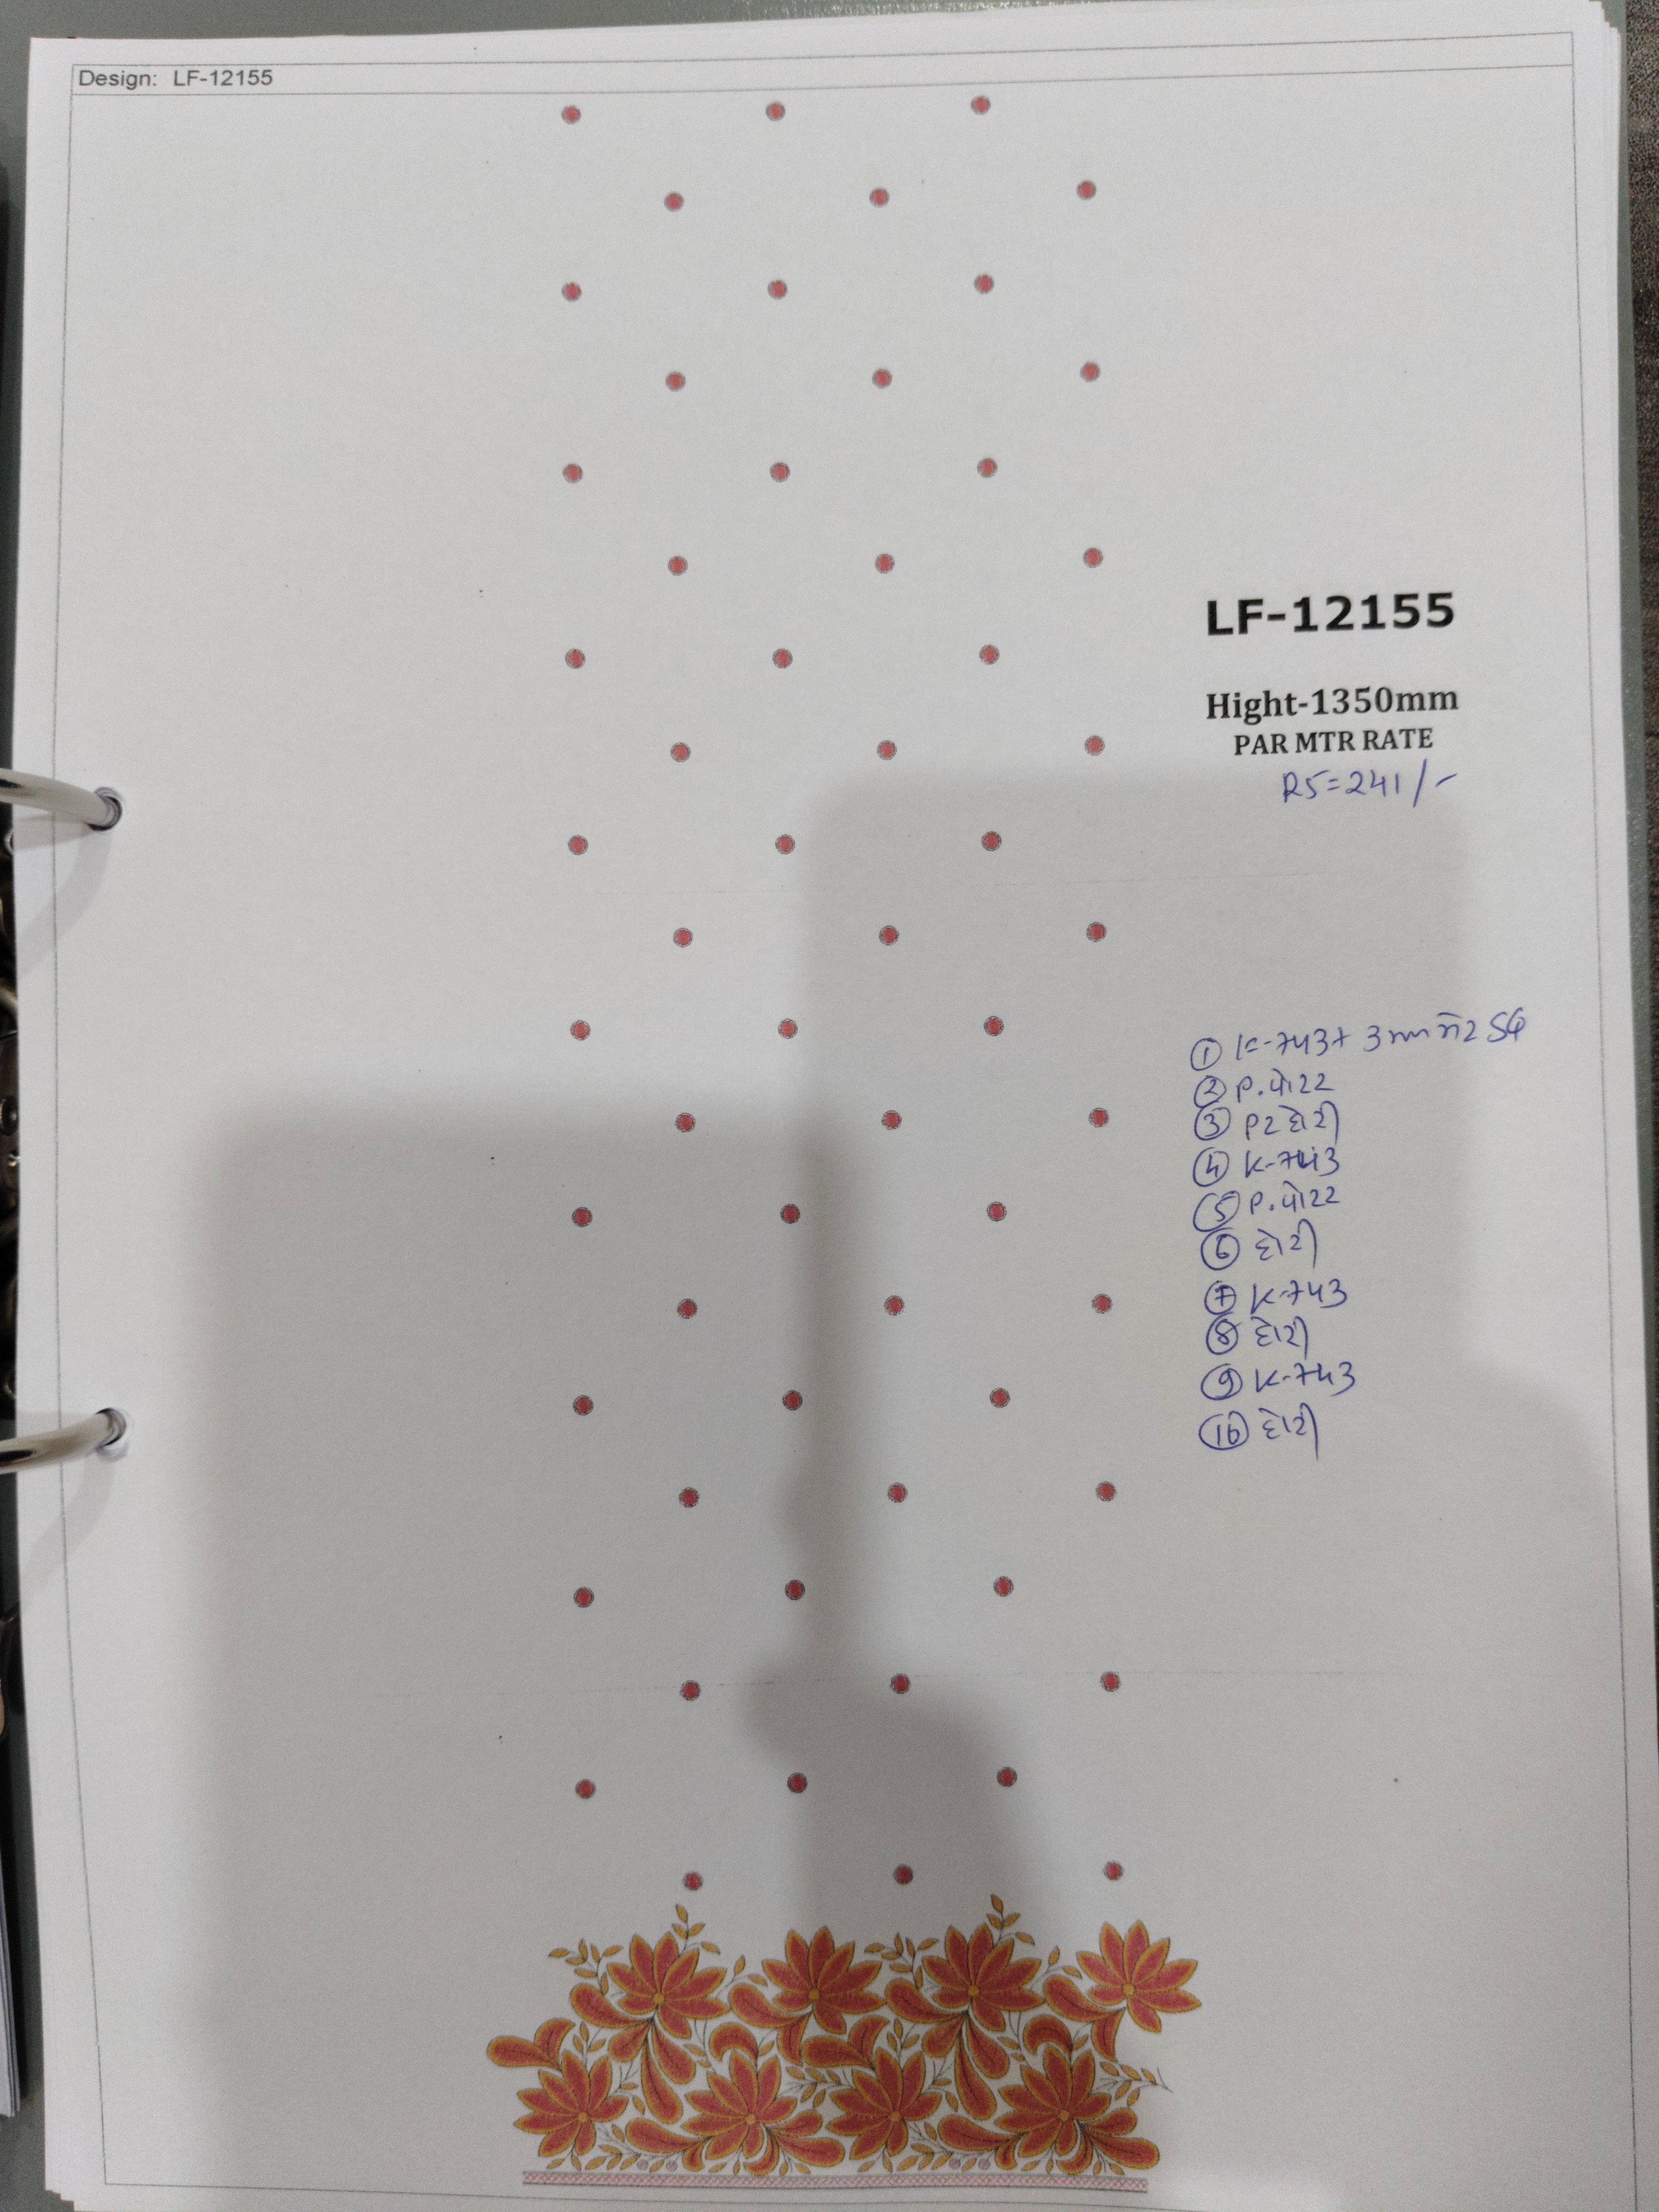 Design: LF-12155
LF-12155
Hight-1350mm
PAR MTR RATE
RS=241/-
① K-743+ 3mm
② P.
③ દોરી
④ K-743
⑤ P.
⑥ દોરી
⑦ K-743
⑧ દોરી
⑨ K-743
⑩ દોરી